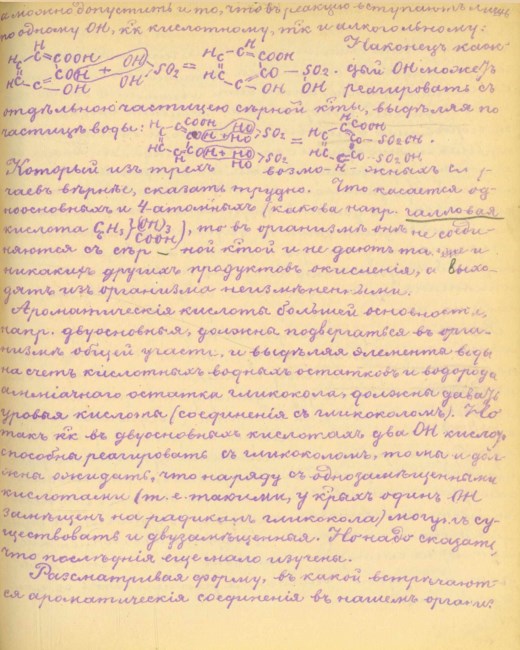 а можно допустить и то, что въ реакцію вступаютъ лишь
по одному OH, к'къ кислотному, т'къ и алкогольному:
Наконецъ кажс-
дый OH можетъ
реагировать съ
отдѣльною частицею сѣрной к'ты, выдѣляя по
частицѣ воды:
Который изъ трехъ возмо- жныхъ сл у-
чаевъ вѣрнѣе, сказать трудно. Что касается од-
ноосновныхъ и 4-атомныхъ (какова напр. галловая
кислота C₆H₂ } (OH)₃ COOH), то въ организмѣ онѣ не соеди-
няются съ сѣр — ной к'той и не даютъ также и
никакихъ другихъ продуктовъ окисленія, а выхо-
дятъ изъ организма неизмѣненными.
Ароматическія кислоты большей основности,
напр. двуосновныя, должны подвергаться въ орга-
низмѣ общей участи, и выдѣляя элементы воды
на счетъ кислотныхъ водныхъ остатковъ и водорода
амміачнаго остатка гликокола, должны давать
уровыя кислоты (соединенія съ гликоколомъ). Но
такъ к'къ въ двуосновныхъ кислотахъ два OH кислот.
способны реагировать съ гликоколомъ, то мы и дол-
жны ожидать, что наряду съ однозамѣщенными
кислотами (т. е. такими, у к'рыхъ одинъ OH
замѣщенъ на радикалъ гликокола) могутъ су-
ществовать и двузамѣщенныя. Но надо сказать,
что послѣднія еще мало изучены.
Разсматривая форму, въ какой встрѣчают-
ся ароматическія соединенія въ нашемъ органи: